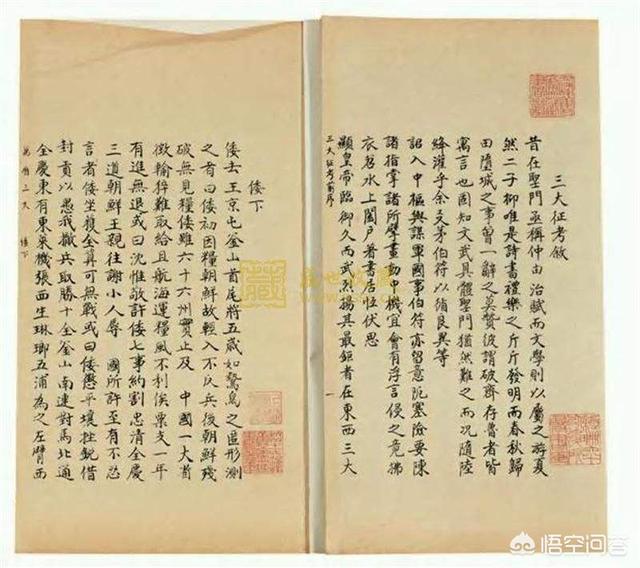 三大征考敘
昔在聖門亟稱仲由治賦而文學則以屬之游夏
然二子抑唯是詩書禮樂之斤斤發明而春秋歸
田墮城之事曾一辭之莫贊彼謂破齊存魯者皆
寓言也固知文武具體聖門猶然難之而況隨陸
絳灌乎余友茅伯符以循良異等
詔入中樞與謀軍國事伯符亦留意阨塞險要陳
諸指掌諸所擘畫動中機宜會有浮言侵之竟拂
衣苕水上閣戶著書居恒伏思
顯皇帝臨御久而武烈揚其最鉅者在東西三大
三大征考前序 一
倭下
倭去王京屯釜山首尾將五歲如驚鳥之匿形測
之者曰倭初因糧朝鮮故輕入不反兵後朝鮮殘
破無見糧倭雖六十六州實止及 中國一大省
徵輸猝難取給且航海運糧風不利俟粟支一年
有進無退或曰沈惟敬許倭七事約割忠清全慶
三道朝鮮王親往謝小人辱 國所許至有不忍
言者倭坐獲全算可無戰或曰倭懲平壤挫銳借
封貢以愚我撤兵取勝十全釜山南連對馬北通
全慶東有東萊機張西生琳瑯五浦為之左臂西
萬曆三大 倭下
藏
悟空问答